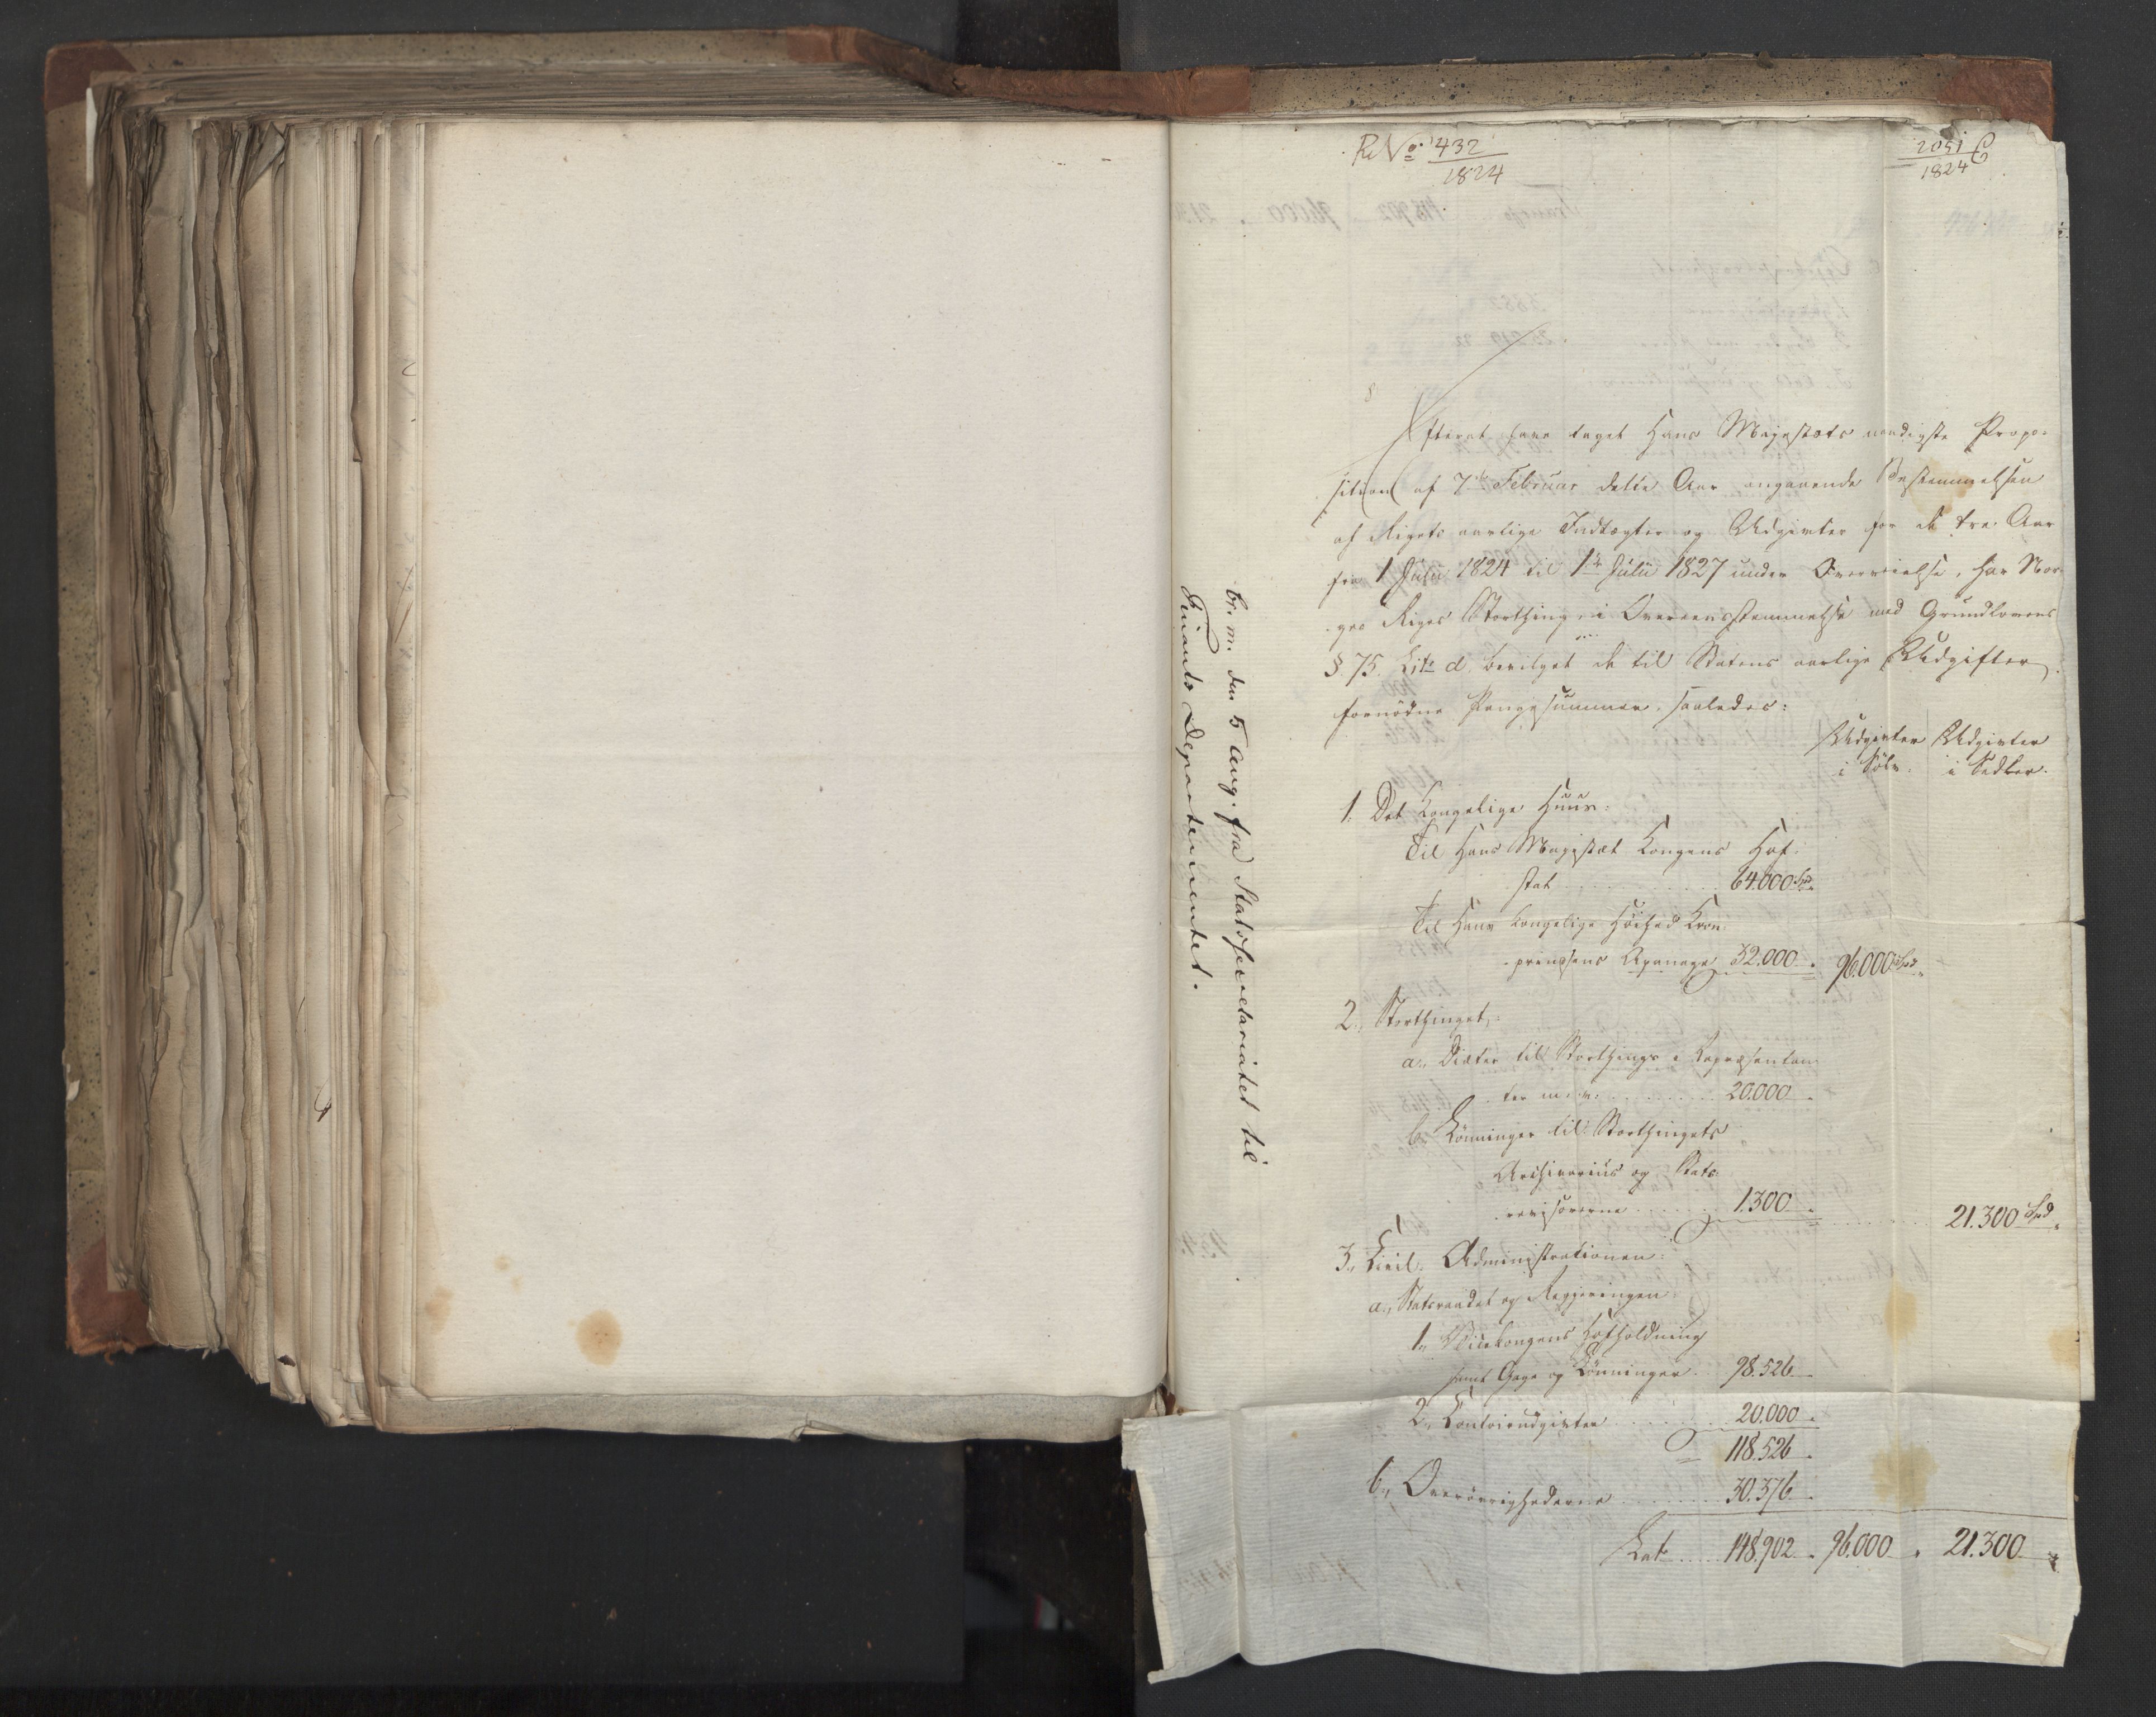 R. No. 432
1824
2051 C
1824
Efterat have taget Hans Majestæts naadigste Propo-
sition af 7de Februar dette Aar angaaende Bestemmelsen
af Rigets aarlige Indtægter og Udgivter for de tre Aar
fra 1 Julii 1824 til 1ste Julii 1827 under Overveielse, har Nor-
ges Riges Storthing, i Overeensstemmelse med Grundlovens
§ 75 Litr d. bevilget de til Statens aarlige Udgifter
fornødne Pengesummer, saaledes:
Udgivter Udgivter
i Sølv. i Sedler.
1. Det Kongelige Huus:
Til Hans Majestæt Kongens Hof-
stat 64.000 Spd.
Til Hans Kongelige Høihed Kron-
prinsens Apanage 32.000 . 96.000 Spd.
2., Storthinget:
a., Diæter til Storthings-Repræsentan-
ter m: v: 20.000 .
b., Lønninger til Storthingets
Archivarius og Stats-
revisorerne 1300 . 21.300 Spd.
3., Civil-Administrationen:
a., Statsraadet og Regjeringen
1., Vicekongens Hofholdning
samt Gage og Lønninger 98.526
2., Contoirudgivter 20.000 .
= 118.526 .
b., Overøvrighederne 30.376 .
Lat. 148.902 . 96.000 . 21.300
br. m. den 5 Aug. fra Statssecretariatet til
Finants Departementet.